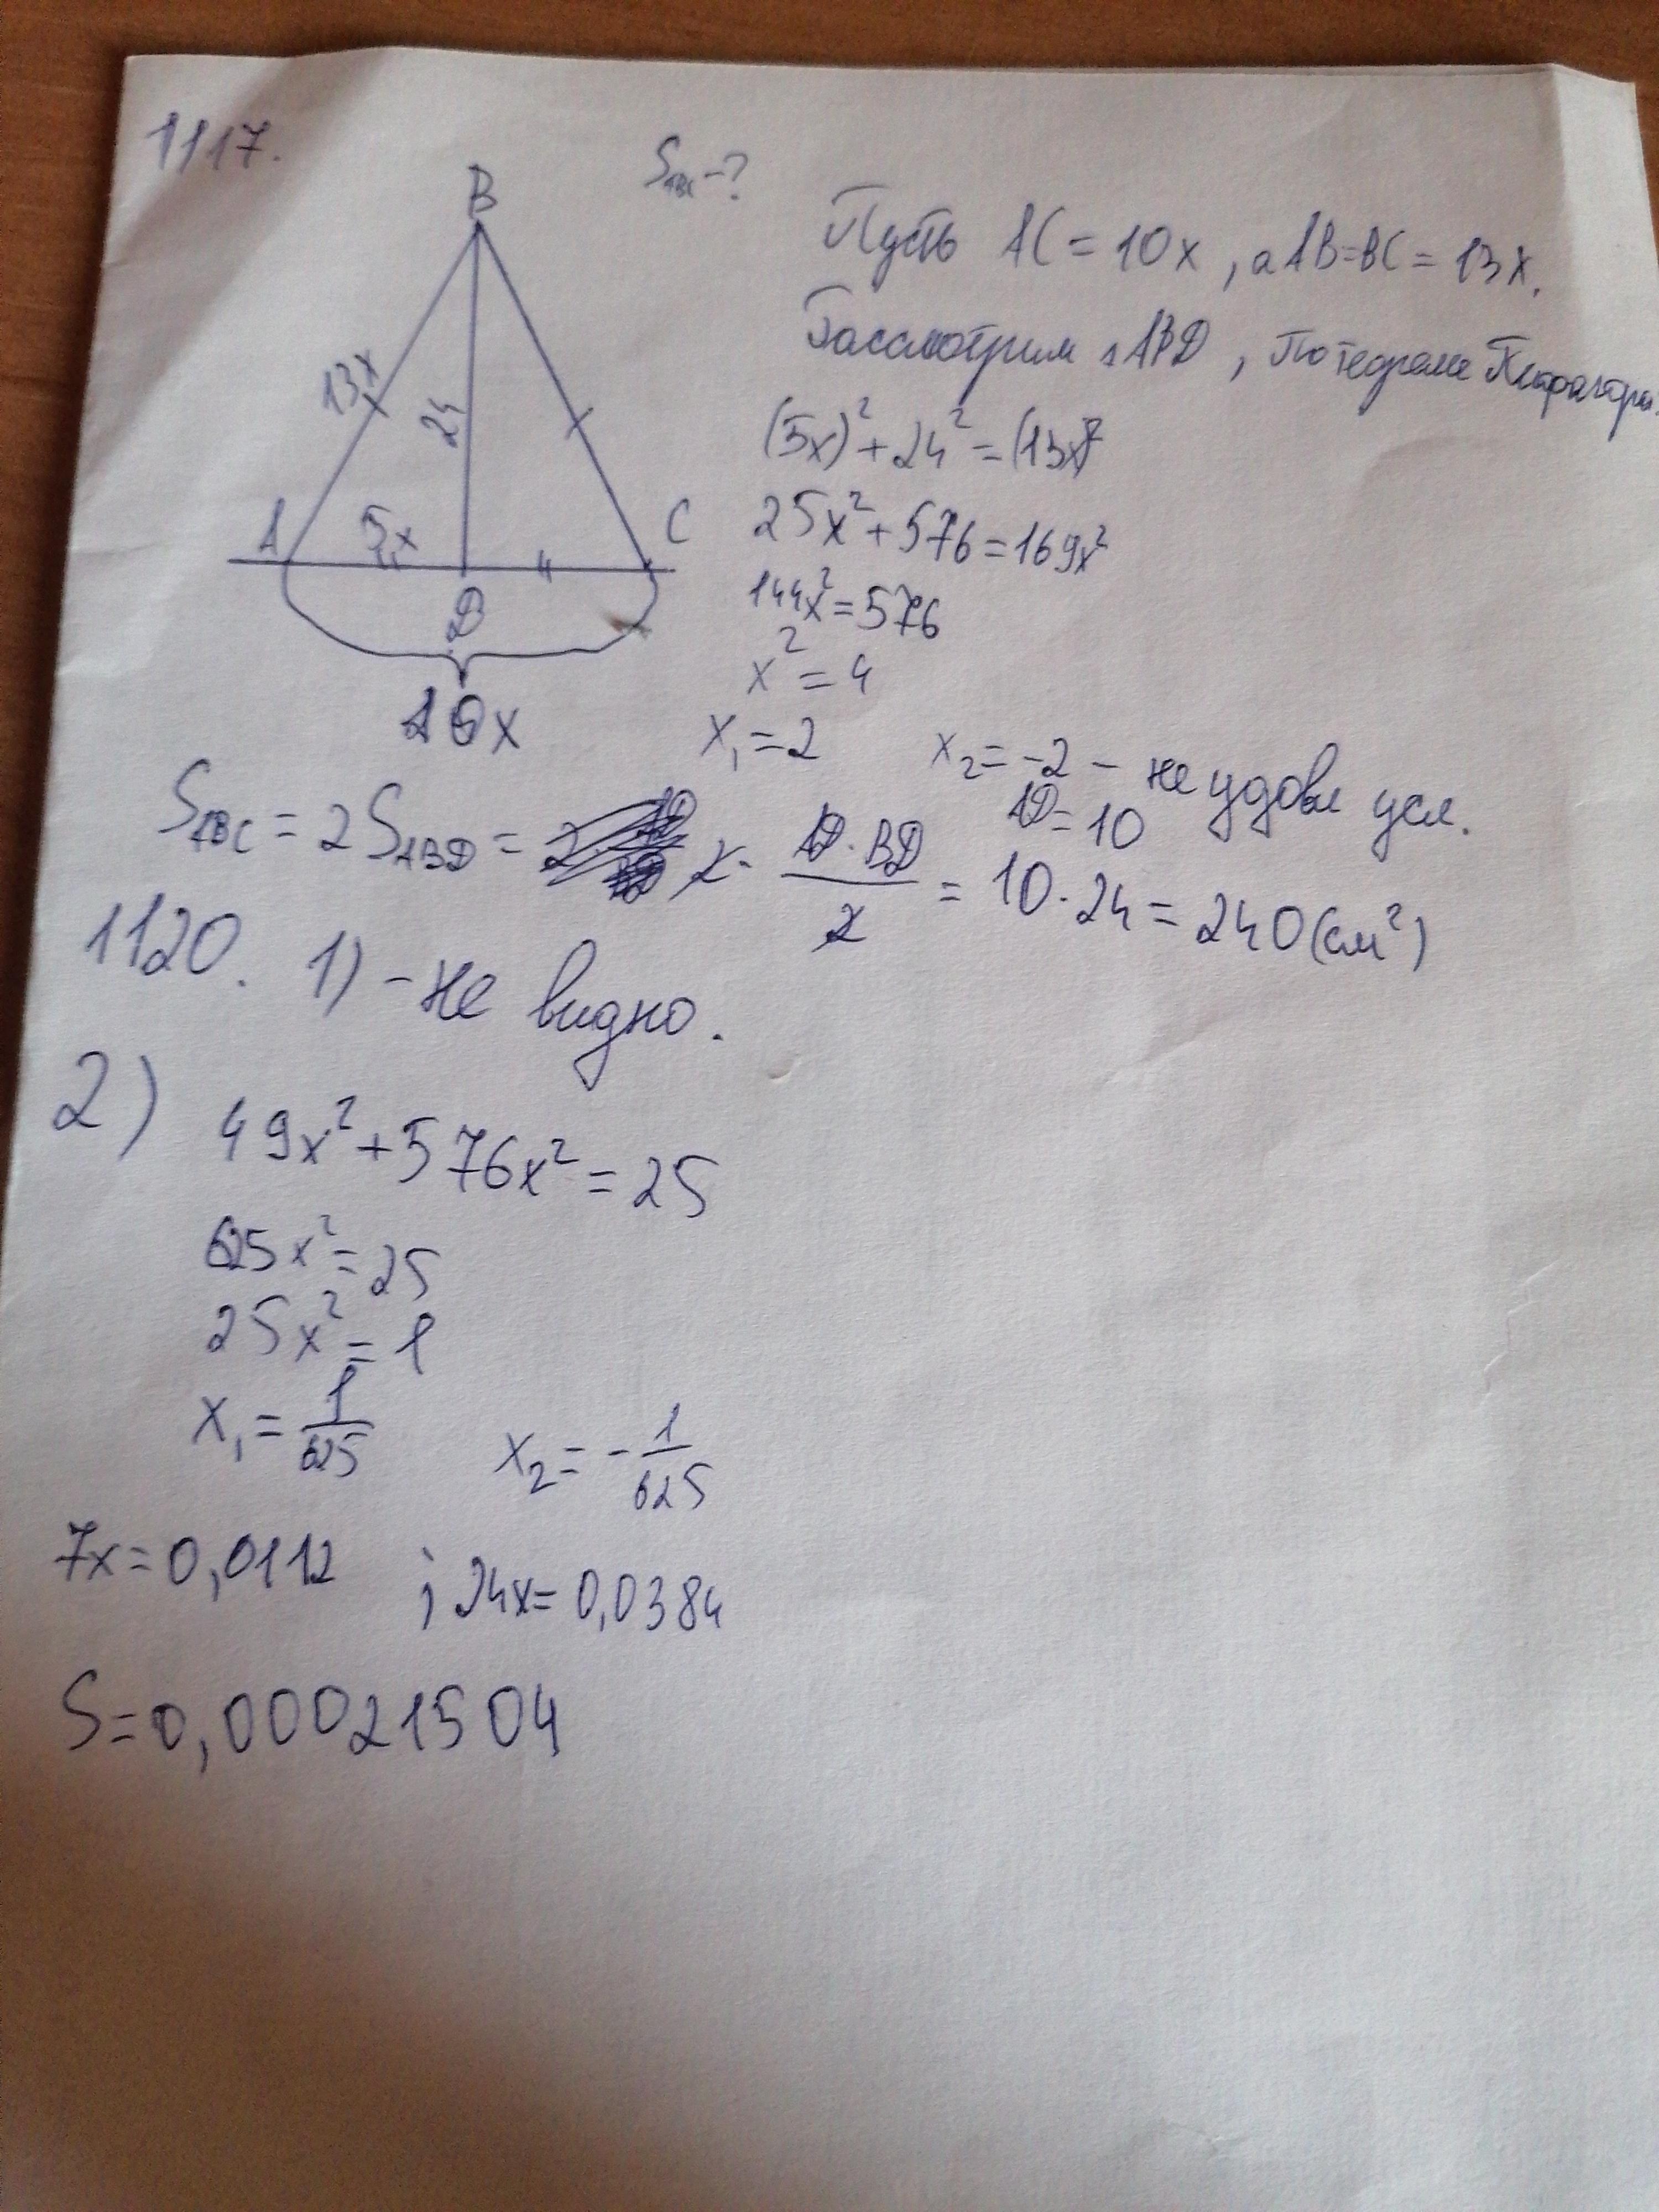 1117.
S_ABC - ?
B
Пусть AC = 10x, а AB=BC = 13x.
Рассмотрим ΔABD, По теореме Пифагора:
13x
24
(5x)² + 24² = (13x)²
A
5x
C
25x² + 576 = 169x²
D
144x² = 576
10x
x² = 4
x₁ = 2 x₂ = -2 - не удовл усл.
AD = 10
S_ABC = 2S_ABD = 2 · AD · BD / 2 = 10 · 24 = 240 (см²)
1120. 1) - не видно.
2) 49x² + 576x² = 25
625x² = 25
25x² = 1
x₁ = 1/625 x₂ = - 1/625
7x = 0,0112 ; 24x = 0,0384
S = 0,00021504